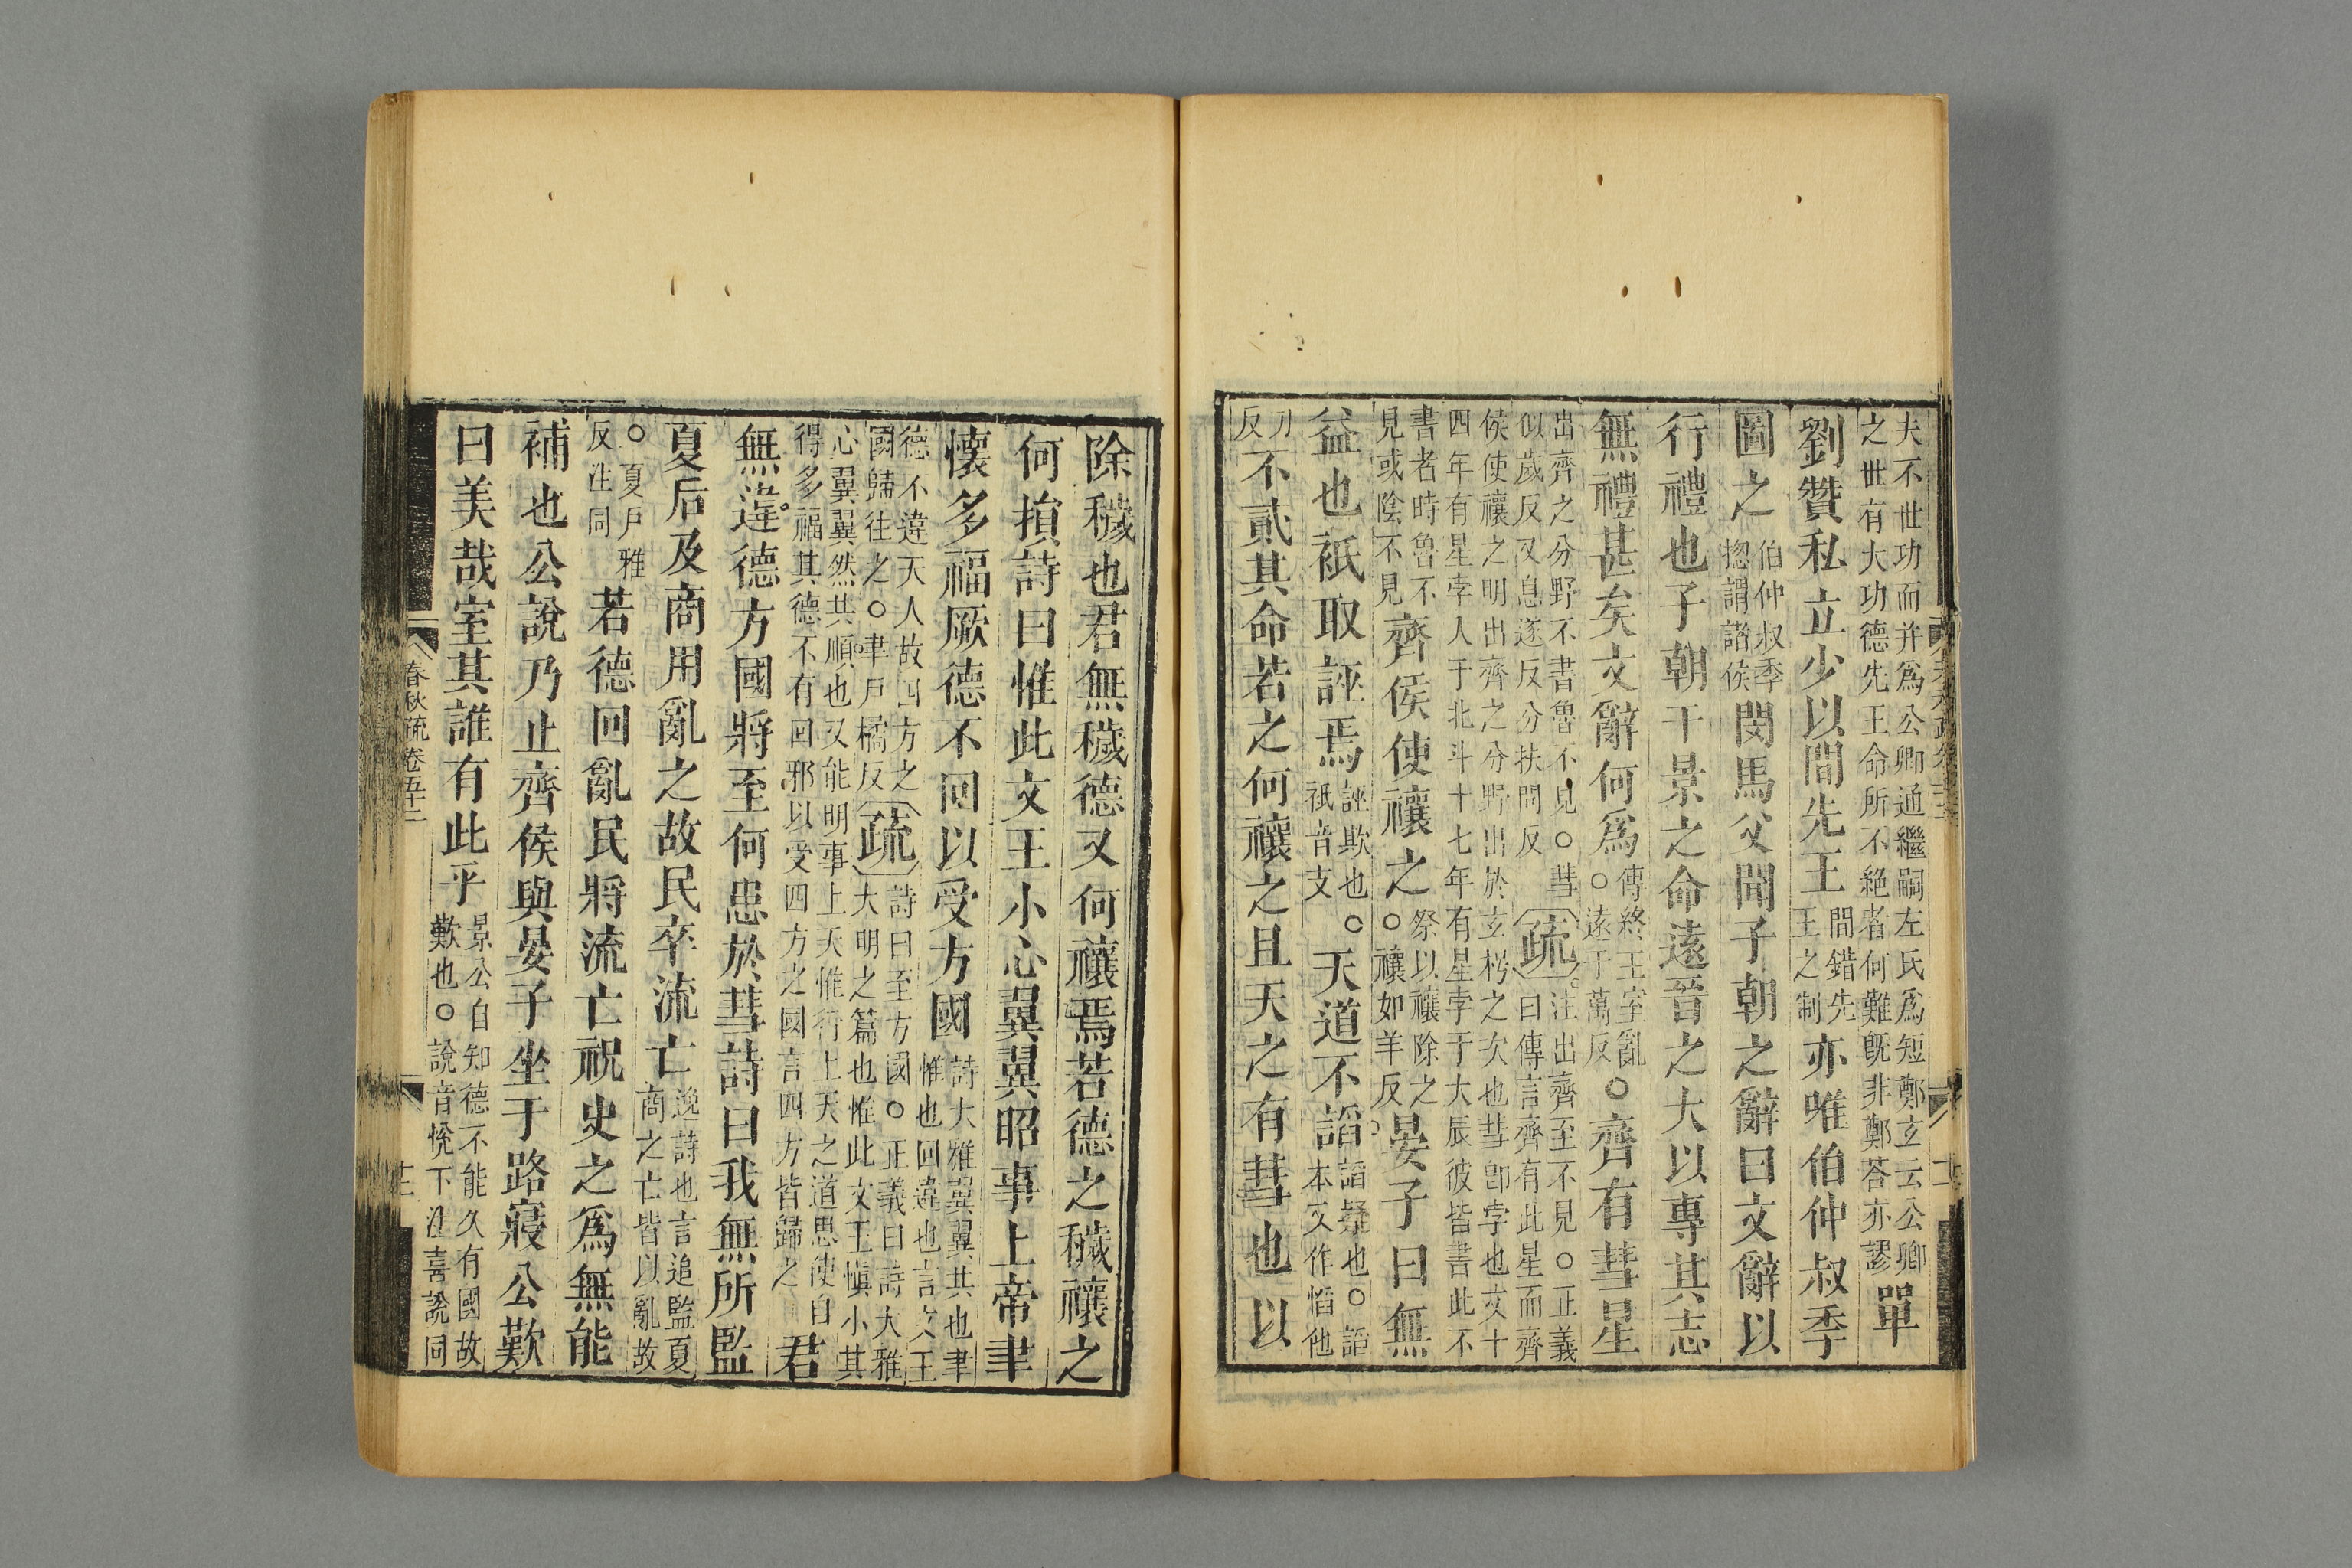 夫不世功而并爲公卿通繼嗣左氏爲短鄭玄云公卿之世有大功德先王命所不絕者何難既非鄭荅亦謬單
劉贊私立少以間先王間錯先王之制亦唯伯仲叔季
圖之伯仲叔季揔謂諸侯閔馬父聞子朝之辭曰文辭以
行禮也子朝干景之命遠晉之大以專其志
無禮甚矣文辭何爲傳終王室亂○遠于萬反○齊有彗星
出齊之分野不書魯不見○彗似歲反又息遂反分扶問反疏注出齊至不見○正義曰傳言齊有此星而齊
侯使禳之明出齊之分野出於玄枵之次也彗卽孛也文十四年有星孛入于北斗十七年有星孛于大辰彼皆書此不
書者時魯不見或陰不見齊侯使禳之祭以禳除之○禳如羊反晏子曰無
益也祇取誣焉誣欺也○祇音支天道不謟謟疑也○謟本又作慆他
刀反不貳其命若之何禳之且天之有彗也以
除穢也君無穢德又何禳焉若德之穢禳之
何損詩曰惟此文王小心翼翼昭事上帝聿
懷多福厥德不回以受方國詩大雅翼翼共也聿惟也回違也言文王
德不違天人故四方之國歸往之○聿戶橘反疏詩曰至方國○正義曰詩大雅大明之篇也惟此文王愼小其
心翼翼然共順也又能明事上天惟行上天之道思使自得多福其德不有回邪以受四方之國言四方皆歸之君
無違德方國將至何患於彗詩曰我無所監
夏后及商用亂之故民卒流亡逸詩也言追監夏商之亡皆以亂故
○夏戶雅反注同若德回亂民將流亡祝史之爲無能
補也公說乃止齊侯與晏子坐于路寢公歎
曰美哉室其誰有此乎景公自知德不能久有國故歎也○說音悅下注喜說同
春秋疏卷五十二